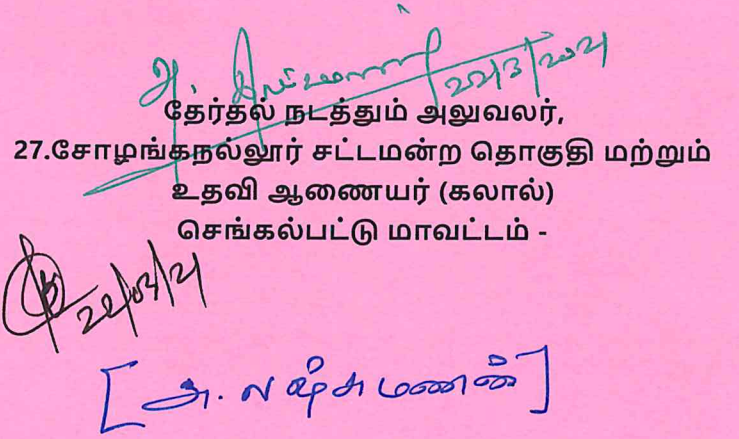 அ. லஷ்மணன் 22/3/2021
தேர்தல் நடத்தும் அலுவலர்,
27.சோழங்கநல்லூர் சட்டமன்ற தொகுதி மற்றும்
உதவி ஆணையர் (கலால்)
செங்கல்பட்டு மாவட்டம் -
22/03/21
[அ. லஷ்சுமணன்]